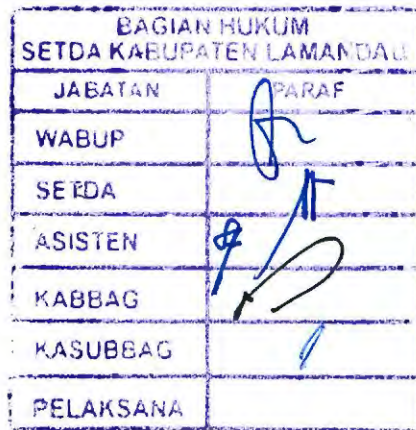 BAGIAN HUKUM
SETDA KABUPATEN LAMANDAU
JABATAN PARAF
WABUP
SETDA
ASISTEN
KABBAG
KASUBBAG
PELAKSANA